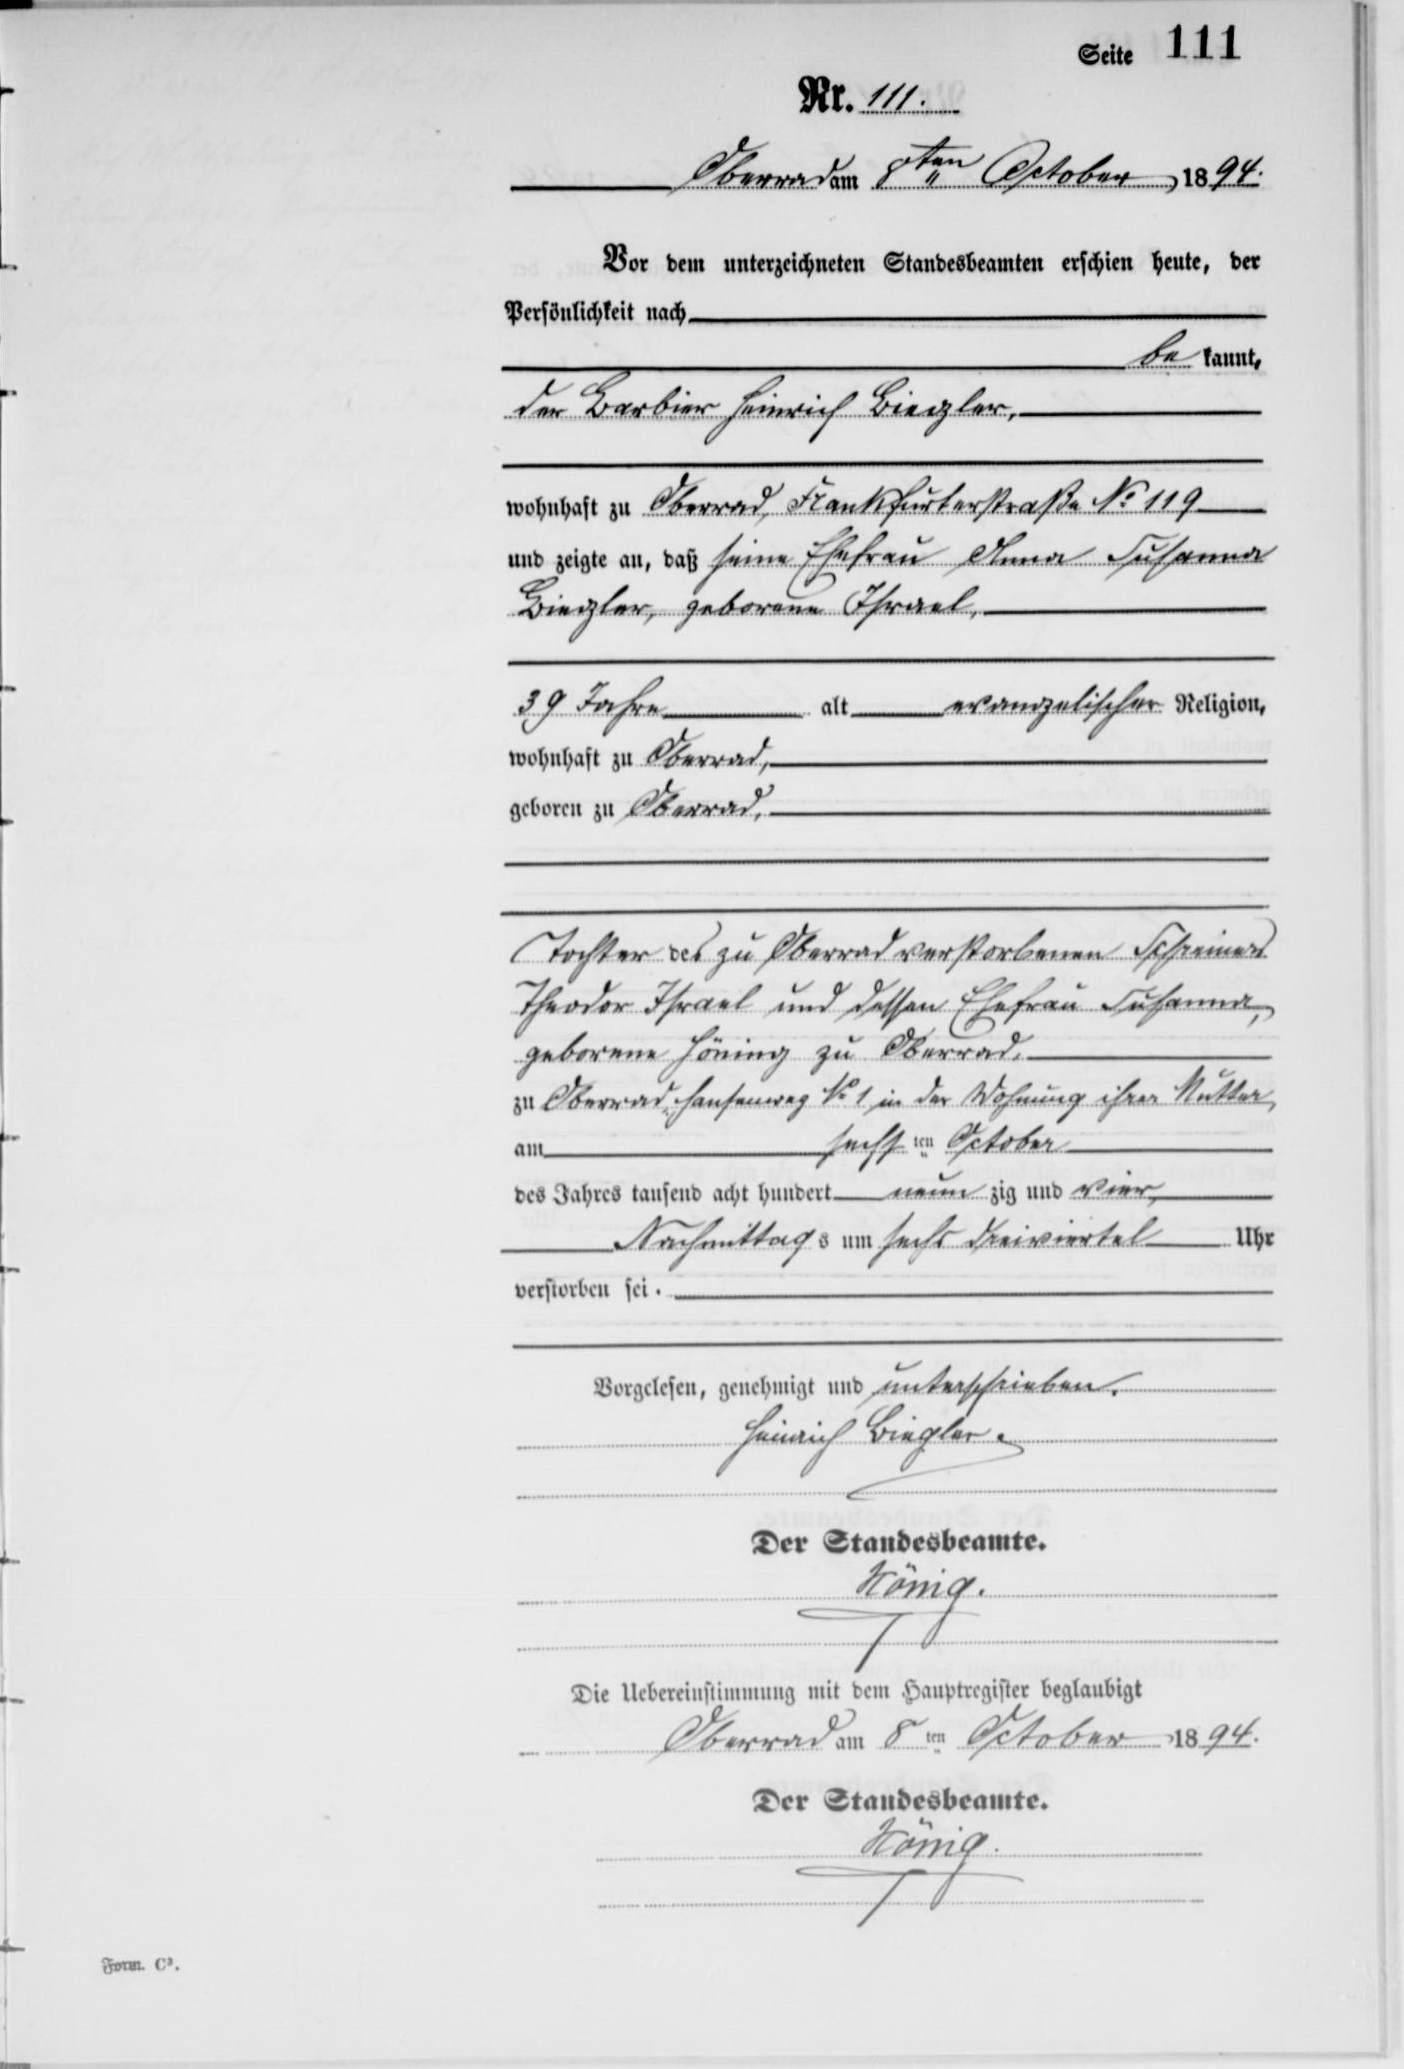 Seite 111
Nr. 111.
Oberrad am 8ten October 1894.
Vor dem unterzeichneten Standesbeamten erschien heute, der
Persönlichkeit nach
bekannt,
der Barbier Heinrich Biegler,
wohnhaft zu Oberrad, Frankfurterstraße No 119
und zeigte an, daß seine Ehefrau Anna Susanna
Biegler, geborene Israel,
39 Jahre alt evangelischer Religion,
wohnhaft zu Oberrad,
geboren zu Oberrad,
Tochter des zu Oberrad verstorbenen Schreiners
Theodor Israel und dessen Ehefrau Susanna,
geborene Höning zu Oberrad.
zu Oberrad, Hansenweg No 1 in der Wohnung ihrer Mutter,
am sechsten October
des Jahres tausend acht hundert neunzig und vier,
Nachmittags um sechs dreiviertel Uhr
verstorben sei.
Vorgelesen, genehmigt und unterschrieben.
Heinrich Biegler.
Der Standesbeamte.
König.
Die Uebereinstimmung mit dem Hauptregister beglaubigt
Oberrad am 8ten October 1894.
Der Standesbeamte.
König.
Form. C³.